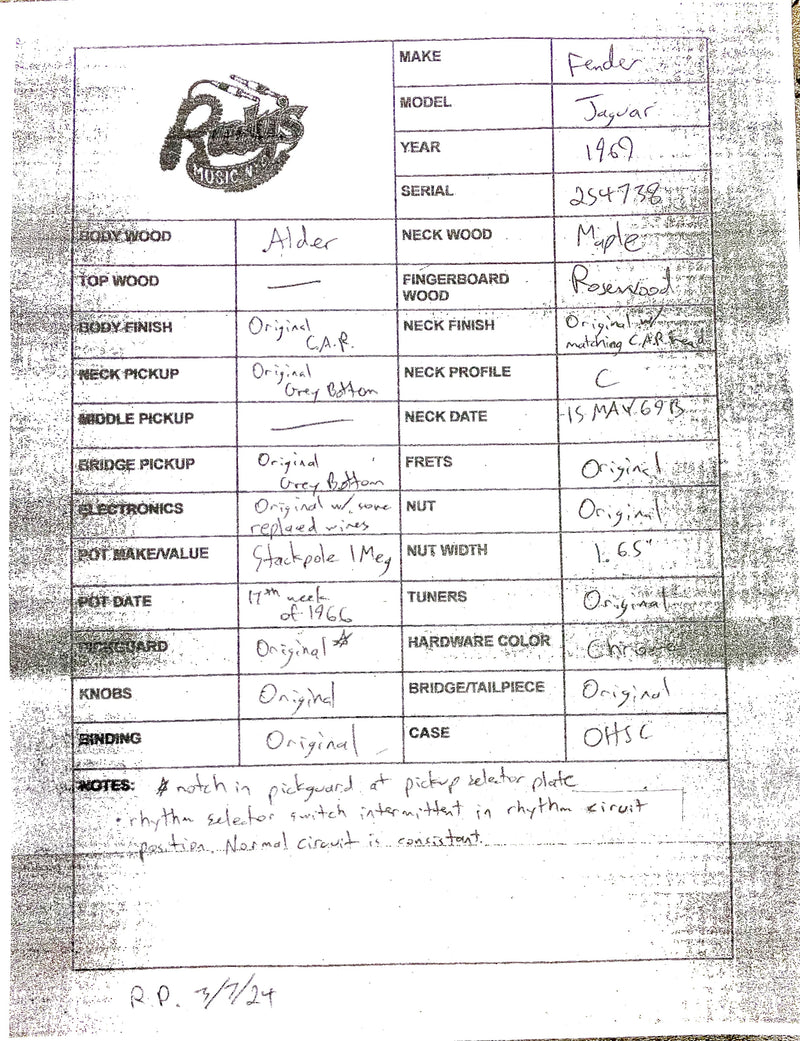 Rudy's
MUSIC N.Y.C.
MAKE Fender
MODEL Jaguar
YEAR 1969
SERIAL 254738
BODY WOOD Alder NECK WOOD Maple
TOP WOOD — FINGERBOARD WOOD Rosewood
BODY FINISH Original C.A.R. NECK FINISH Original w/ matching C.A.R. head
NECK PICKUP Original Grey Bottom NECK PROFILE C
MIDDLE PICKUP — NECK DATE 15 MAY 69 B
BRIDGE PICKUP Original Grey Bottom FRETS Original
ELECTRONICS Original w/ some replaced wires NUT Original
POT MAKE/VALUE Stackpole 1 Meg NUT WIDTH 1.65"
POT DATE 17th week of 1966 TUNERS Original
PICKGUARD Original * HARDWARE COLOR Chrome
KNOBS Original BRIDGE/TAILPIECE Original
BINDING Original CASE OHSC
NOTES: * notch in pickguard at pickup selector plate
• rhythm selector switch intermittent in rhythm circuit
position. Normal circuit is consistant.
R.P. 3/7/24